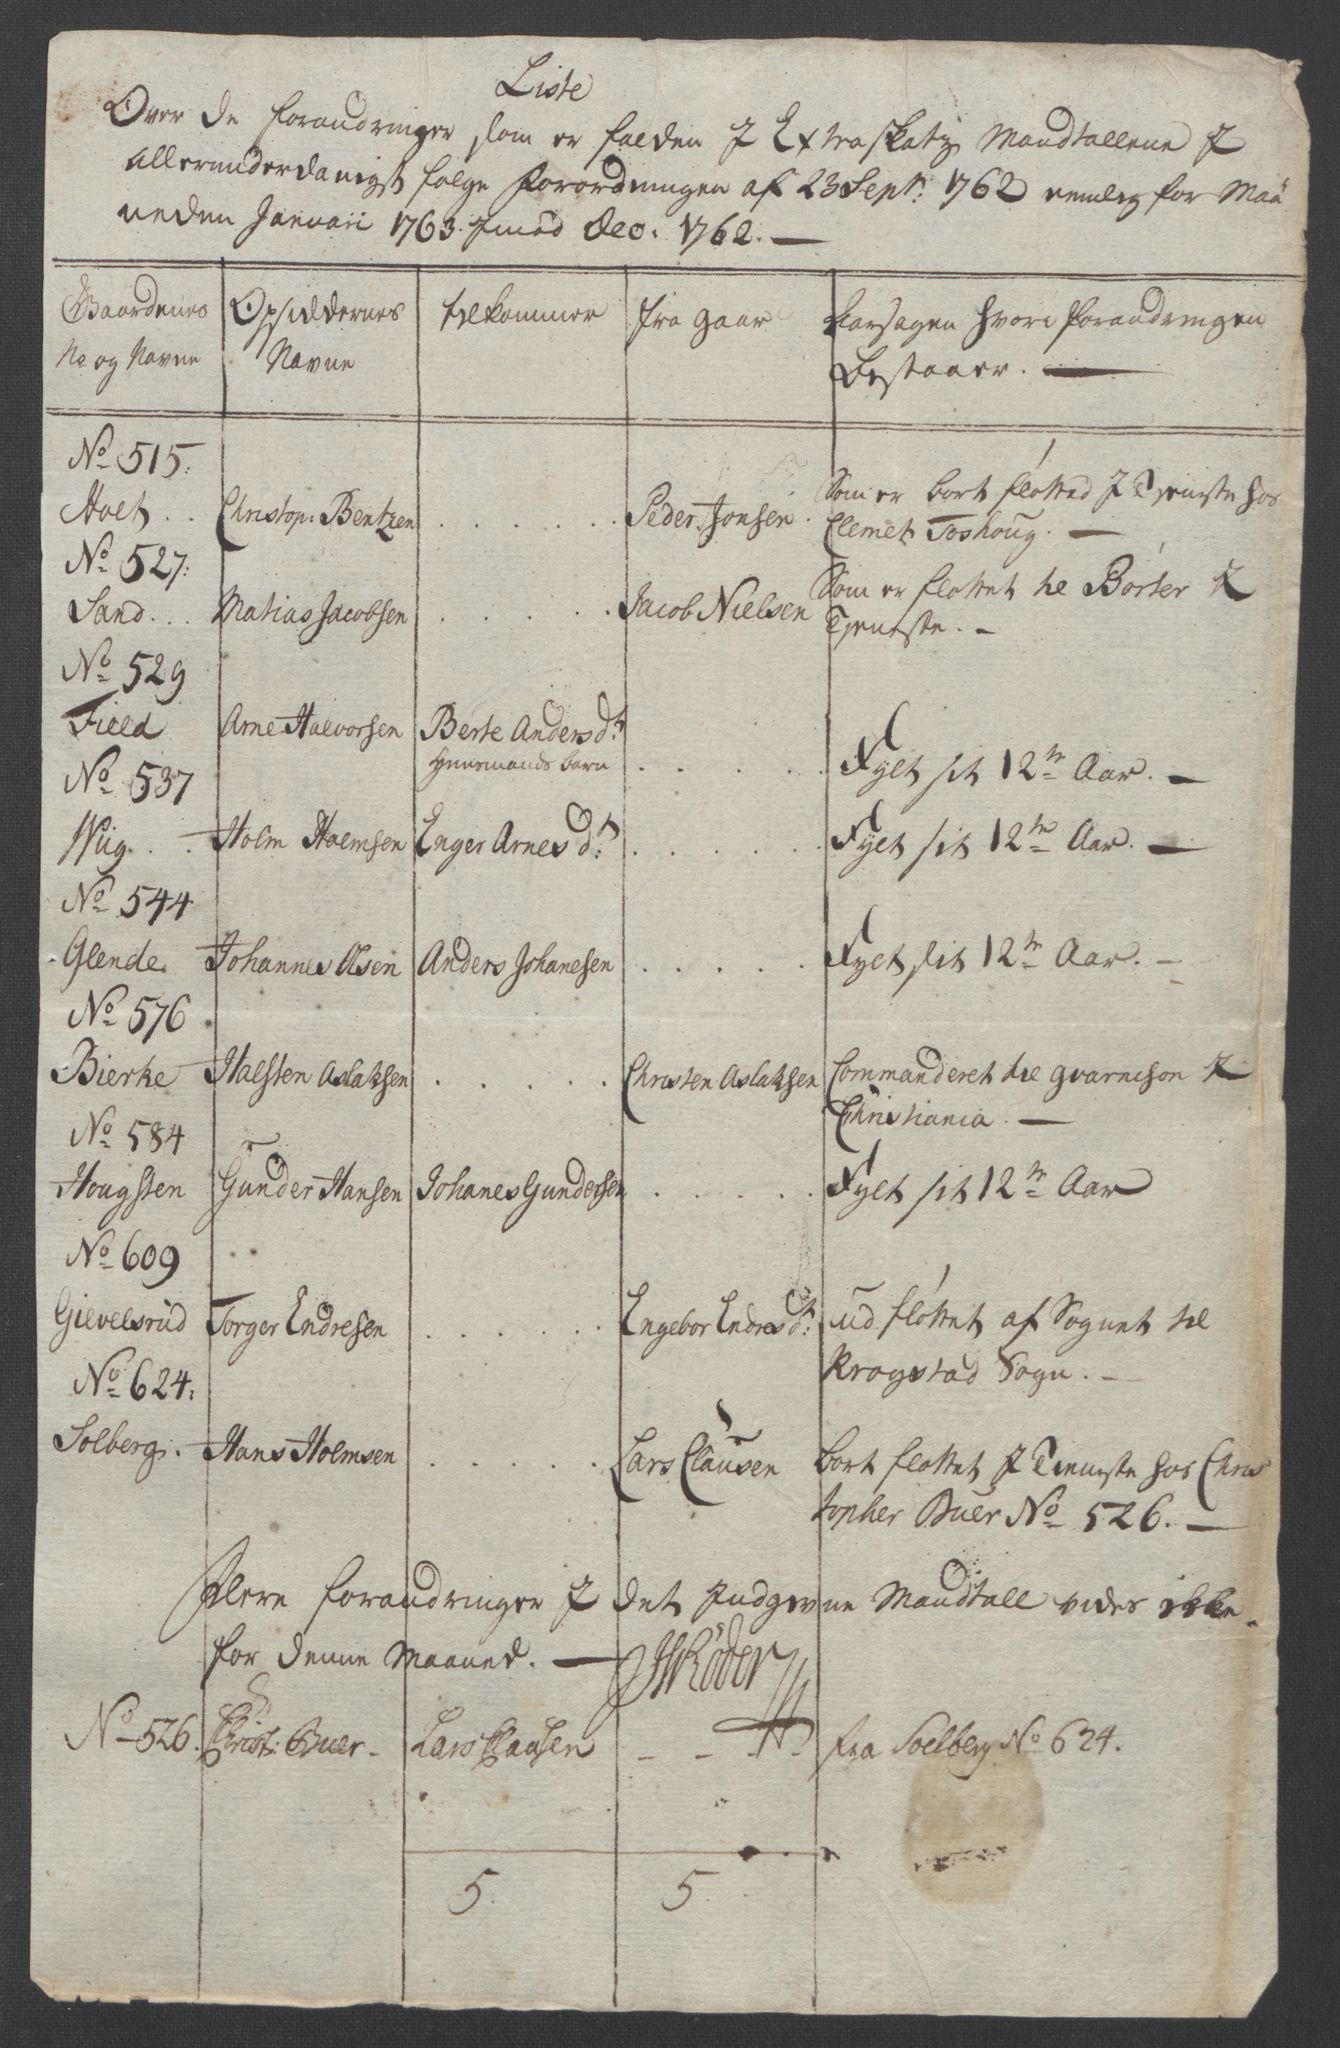 Liste
Over de forandringer som er falden J Extraskatz Mandtallene J
allerunderdanigst følge Forordningen af 23 Sept: 1762 nemlig for Maa
neden Januarii 1763 imod Dec. 1762. —
Gaardenes Opsiddernes tilkommer fra gaar Aarsagen hvori forandringen
No og Navne Navne bestaaer. —
No 515:
Holt . . Christop: Bentzen . . . . . . Peder Jonsen . Som er bort fløtted J Tjeneste hos
Clemet Toshoug. —
No 527:
Sand . . . Matias Jacobsen . . . . . Jacob Nielsen Som er fløttet til Börter J
Tjeneste. —
No 529
Field Arne Halvorsen Berte Anders dr
Huusmands barn . . . . . Fylt sit 12te Aar. —
No 537
Wiig . . . Holm Holmsen Enger Arnes dr: . . . . . Fylt sit 12te Aar. —
No 544
Glende. Johannes Olsen Anders Johanesen . . . . . Fylt sit 12te Aar. —
No 576
Bierke Halsten Aslaksen . . . . . Christen Aslaksen Commanderet til gvarnison J
Christiania. —
No 584
Hougsten Gunder Hansen Johanes Gundersen . . . . . Fylt sit 12te Aar
No 609
Gielvelsrud Torger Endresen . . . . . . Engebor Endres dr: ud fløttet af Sognet til
Kragstad Sogn. —
No 624:
Solberg. Hans Holmsen . . . . . . Lars Clausen bort fløttet J Tieneste hos Chris
topher Buer No 526. —
Flere forandringer J det Indgivne Mandtall vides ikke
for denne Maaned. — Röder
No 526. Christ: Buer - Lars Clausen - - - fra Solberg No 624.
5 5